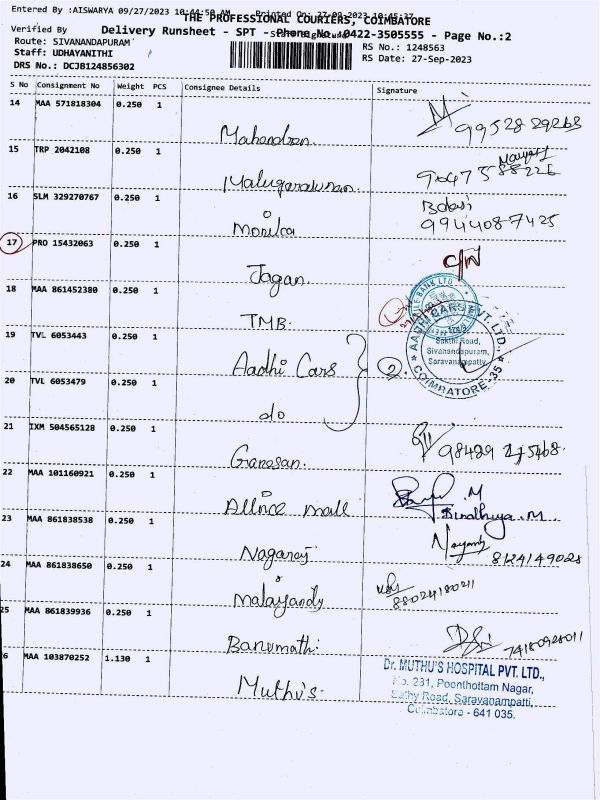 Entered By :AISWARYA 09/27/2023 10:44:50 AM Printed On: 27-09-2023 10:45:37
THE PROFESSIONAL COURIERS, COIMBATORE
Verified By Delivery Runsheet - SPT - Phone No :0422-3505555 - Page No.:2
Route: SIVANANDAPURAM RS No.: 1248563
Staff: UDHAYANITHI RS Date: 27-Sep-2023
DRS No.: DCJB124856302
S No Consignment No Weight PCS Consignee Details Signature
14 MAA 571818304 0.250 1
Mahendran 99528 29268
15 TRP 2042108 0.250 1
16 SLM 329270767 0.250 1
Monika 9944087425
17 PRO 15432063 0.250 1
Jagan.
18 MAA 861452380 0.250 1
TMB.
19 TVL 6053443 0.250 1
Aadhi Cars 2
AADHI CARS PVT. LTD.,
Sakthi Road,
Sivanandapuram,
Saravanampatty,
COIMBATORE-35
20 TVL 6053479 0.250 1
do
21 IXM 504565128 0.250 1
Ganesan.
22 MAA 101160921 0.250 1
Allnce mall
23 MAA 861838538 0.250 1
Nagaraj 8124149028
24 MAA 861838650 0.250 1
Malayandy 88024180211
25 MAA 861839936 0.250 1
Banumathi.
6 MAA 103870252 1.130 1
Muthu's.
Dr. MUTHU'S HOSPITAL PVT. LTD.,
No. 231, Poonthottam Nagar,
Sathy Road, Saravanampatti,
Coimbatore - 641 035.